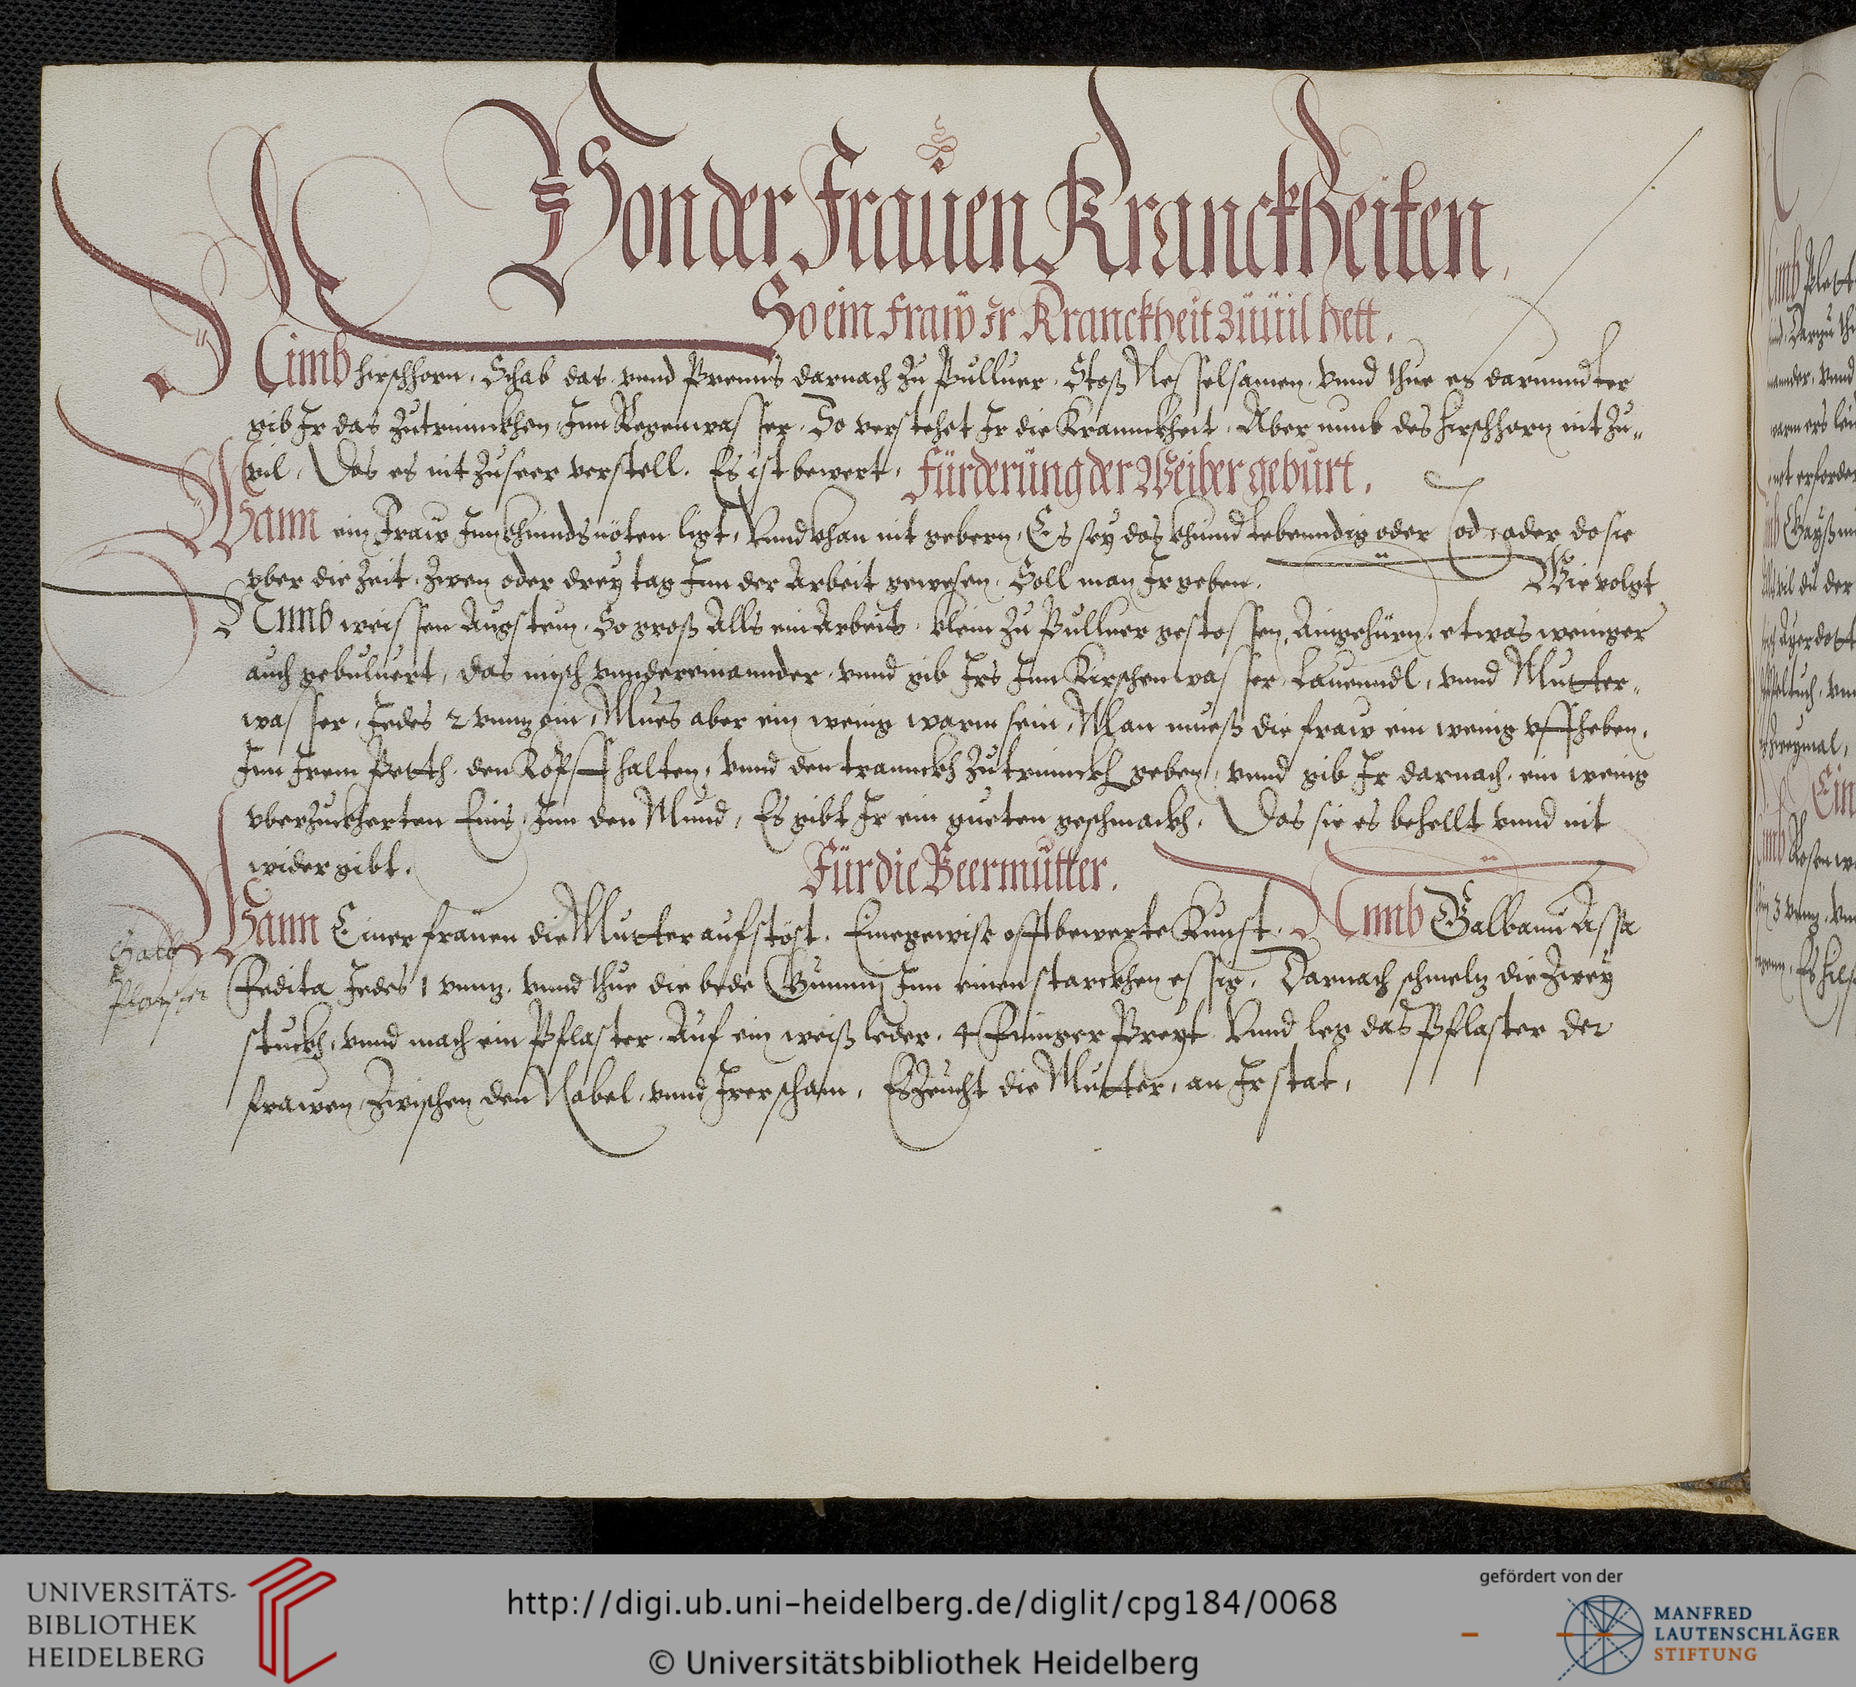 Von der Frauen Kranckheiten.
So ein Fraw Ir Kranckheit zuuil hett.
Nimb hirschhorn, Schab das vnnd Prenns darnach zu Pulluer, Stoß Nesselsamen vnnd thue es darunndter
gib Ir das zutrinnckhen Inn Regenwasser, So verstehet Ir die Kranckheit, Aber nimb des hirschhorn nit zu=
vil, Das es nit zuseer verstell. Es ist bewert. Fürderung der Weiber geburt.
Wann ein Fraw Inn khinds nöten ligt, Vnnd khan nit gebern, Es sey das khind lebenndig oder Tod, oder do sie
yber die Zeit, Zwen oder drey tag Inn der Arbeit gewesen, Soll man Ir geben. Wie volgt
Nimb weissen Augstein, So groß Alls ein Arbeits, klein zu Pulluer gestossen, Aingehürn, etwas weniger
auch gebuluert, das misch vnndereinannder, vnnd gib Irs Inn Kirschenwasser, Lauenndl, vnnd Mutter=
wasser, Jedes 2 vnnz ein, Mues aber ein wenig warm sein, Man mueß die fraw ein wenig vffheben,
Inn Irem Betth, den Kopff halten, vnnd den tranckh zutrinnckh geben, vnnd gib Ir darnach, ein wenig
vberzuckherten Enis, Inn den Mund, Es gibt Ir ein gueten geschmackh, Das sie es behellt vnnd nit
widergibt.
Für die Beermutter.
Wann Einer frauen die Mutter aufstöst, Ein gewise offt bewerte Kunst, Nimb Galbanu Assa
Fedita Jedes 1 vnnz, vnnd thue die bede Gummj Inn einen starckhen essig, Darnach schmelz die Zwey
stuckh, vnnd mach ein Pflaster, Auf ein weiß leder, 4 Finnger Preyt, Vnnd leg das Pflaster der
frawen, Zwischen den Nabel, vnnd Irer scham, Es Zeucht die Mutter, an Ir stat,
UNIVERSITÄTS-
BIBLIOTHEK
HEIDELBERG
http://digi.ub.uni-heidelberg.de/diglit/cpg184/0068
© Universitätsbibliothek Heidelberg
gefördert von der
MANFRED
LAUTENSCHLÄGER
STIFTUNG